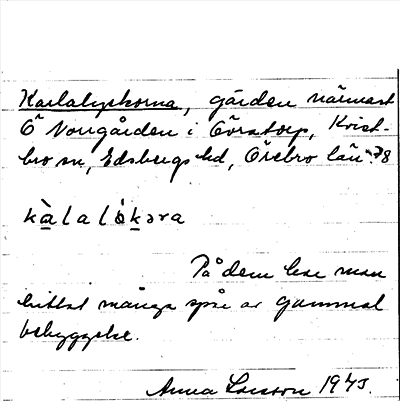 Karlalyckorna, gärden närmast
Ö Norrgården i Göratorp, Kvist-
bro sn, Edsbergs hd, Örebro län. 78
kàlalókəra
På dem har man
hittat många spår av gammal
bebyggelse.
Anna Larsson 1945.